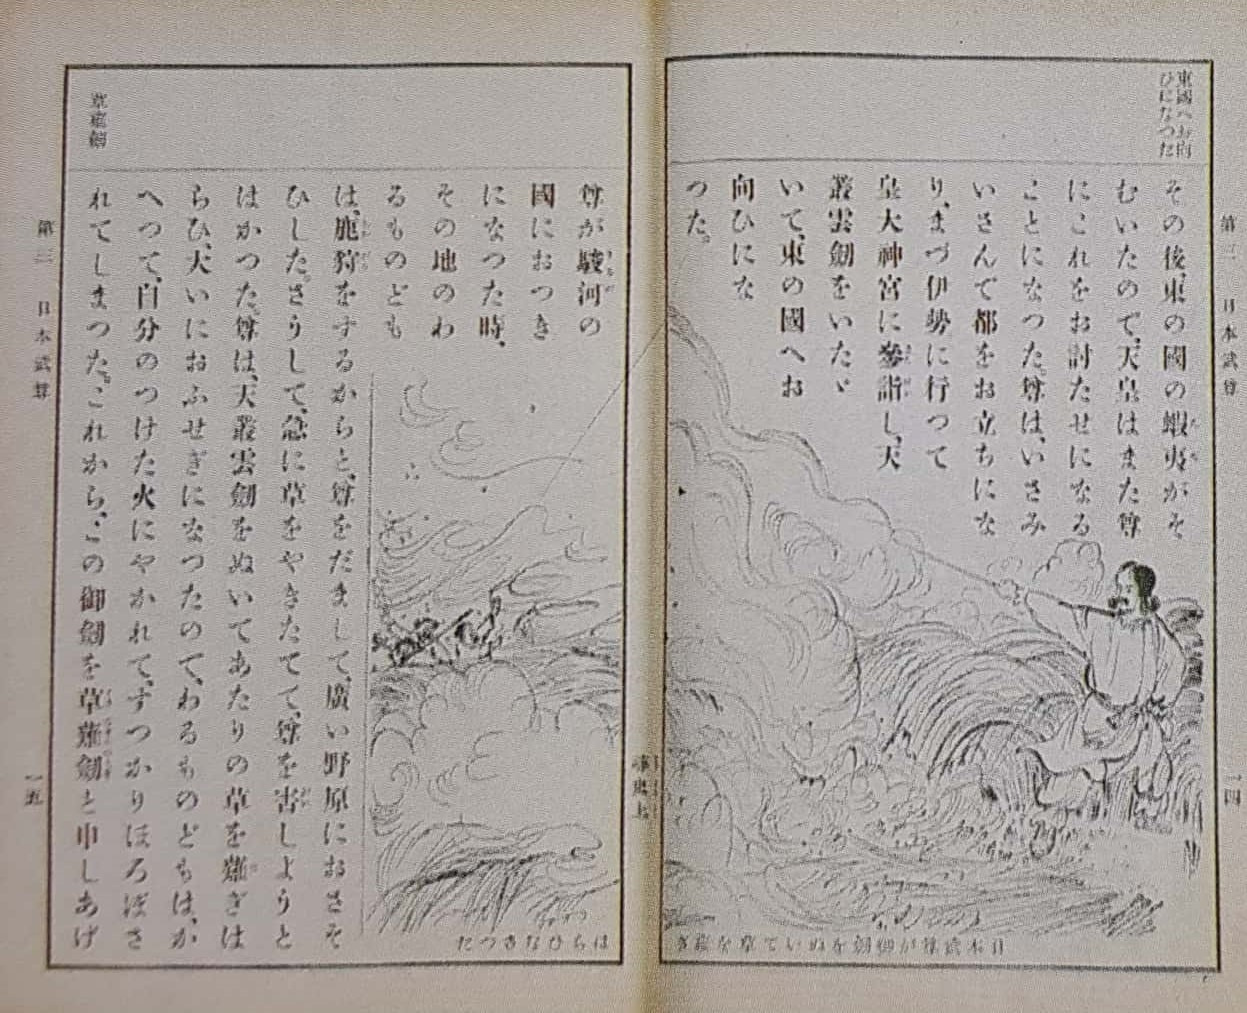 東國へお向
ひになつた
その後、東の國の蝦夷がそ
むいたので、天皇はまた尊
にこれをお討たせになる
ことになつた。尊は、いさみ
いさんで都をお立ちにな
り、まづ伊勢に行つて
皇大神宮に參詣し、天
叢雲劒をいたゞ
いて、東の國へお
向ひにな
つた。
日本武尊が御劒をぬいて草を薙ぎ
第三 日本武尊
一四
尊が駿河の
國におつき
になつた時、
その地のわ
るものども
は、鹿狩をするからと、尊をだまして、廣い野原におさそ
ひした。さうして、急に草をやきたてて、尊を害しようと
はかつた。尊は、天叢雲劒をぬいてあたりの草を薙ぎは
らひ、大いにおふせぎになつたので、わるものどもは、か
へつて、自分のつけた火にやかれて、すつかりほろぼさ
れてしまつた。これから、この御劒を草薙劒と申しあげ
はらひなさつた
草薙劒
第三 日本武尊
一五